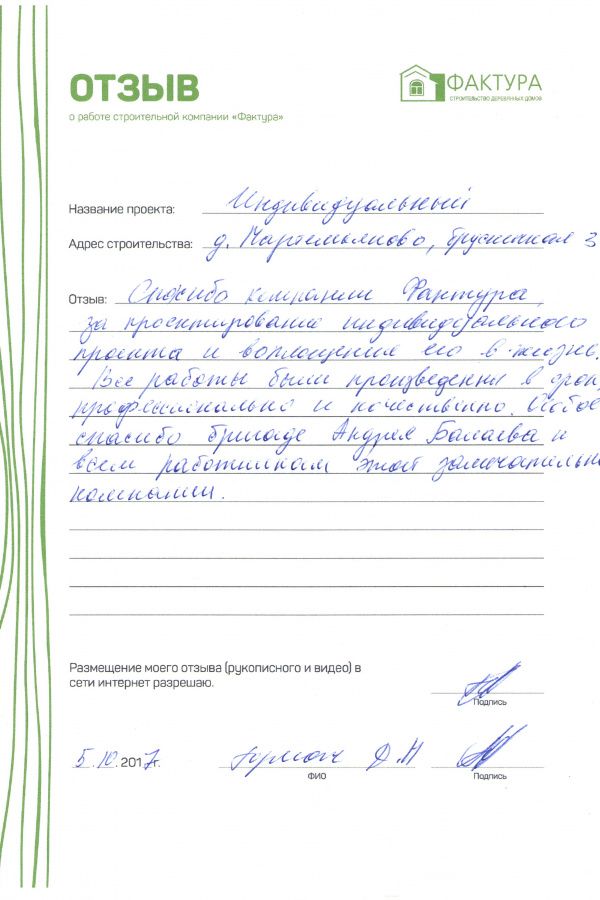 ОТЗЫВ
о работе строительной компании «Фактура»
ФАКТУРА
СТРОИТЕЛЬСТВО ДЕРЕВЯННЫХ ДОМОВ
Название проекта: Индивидуальный
Адрес строительства: д. Мартемьяново, брусничная 3
Отзыв: Спасибо компании Фактура,
за проектирование индивидуального
проекта и воплощения его в жизнь.
Все работы были произведены в срок,
профессионально и качественно. Особое
спасибо бригаде Андрея Балаева и
всем работникам этой замечательно
компании.
Размещение моего отзыва (рукописного и видео) в
сети интернет разрешаю.
Подпись
5.10.2017г. Д.Н
ФИО
Подпись